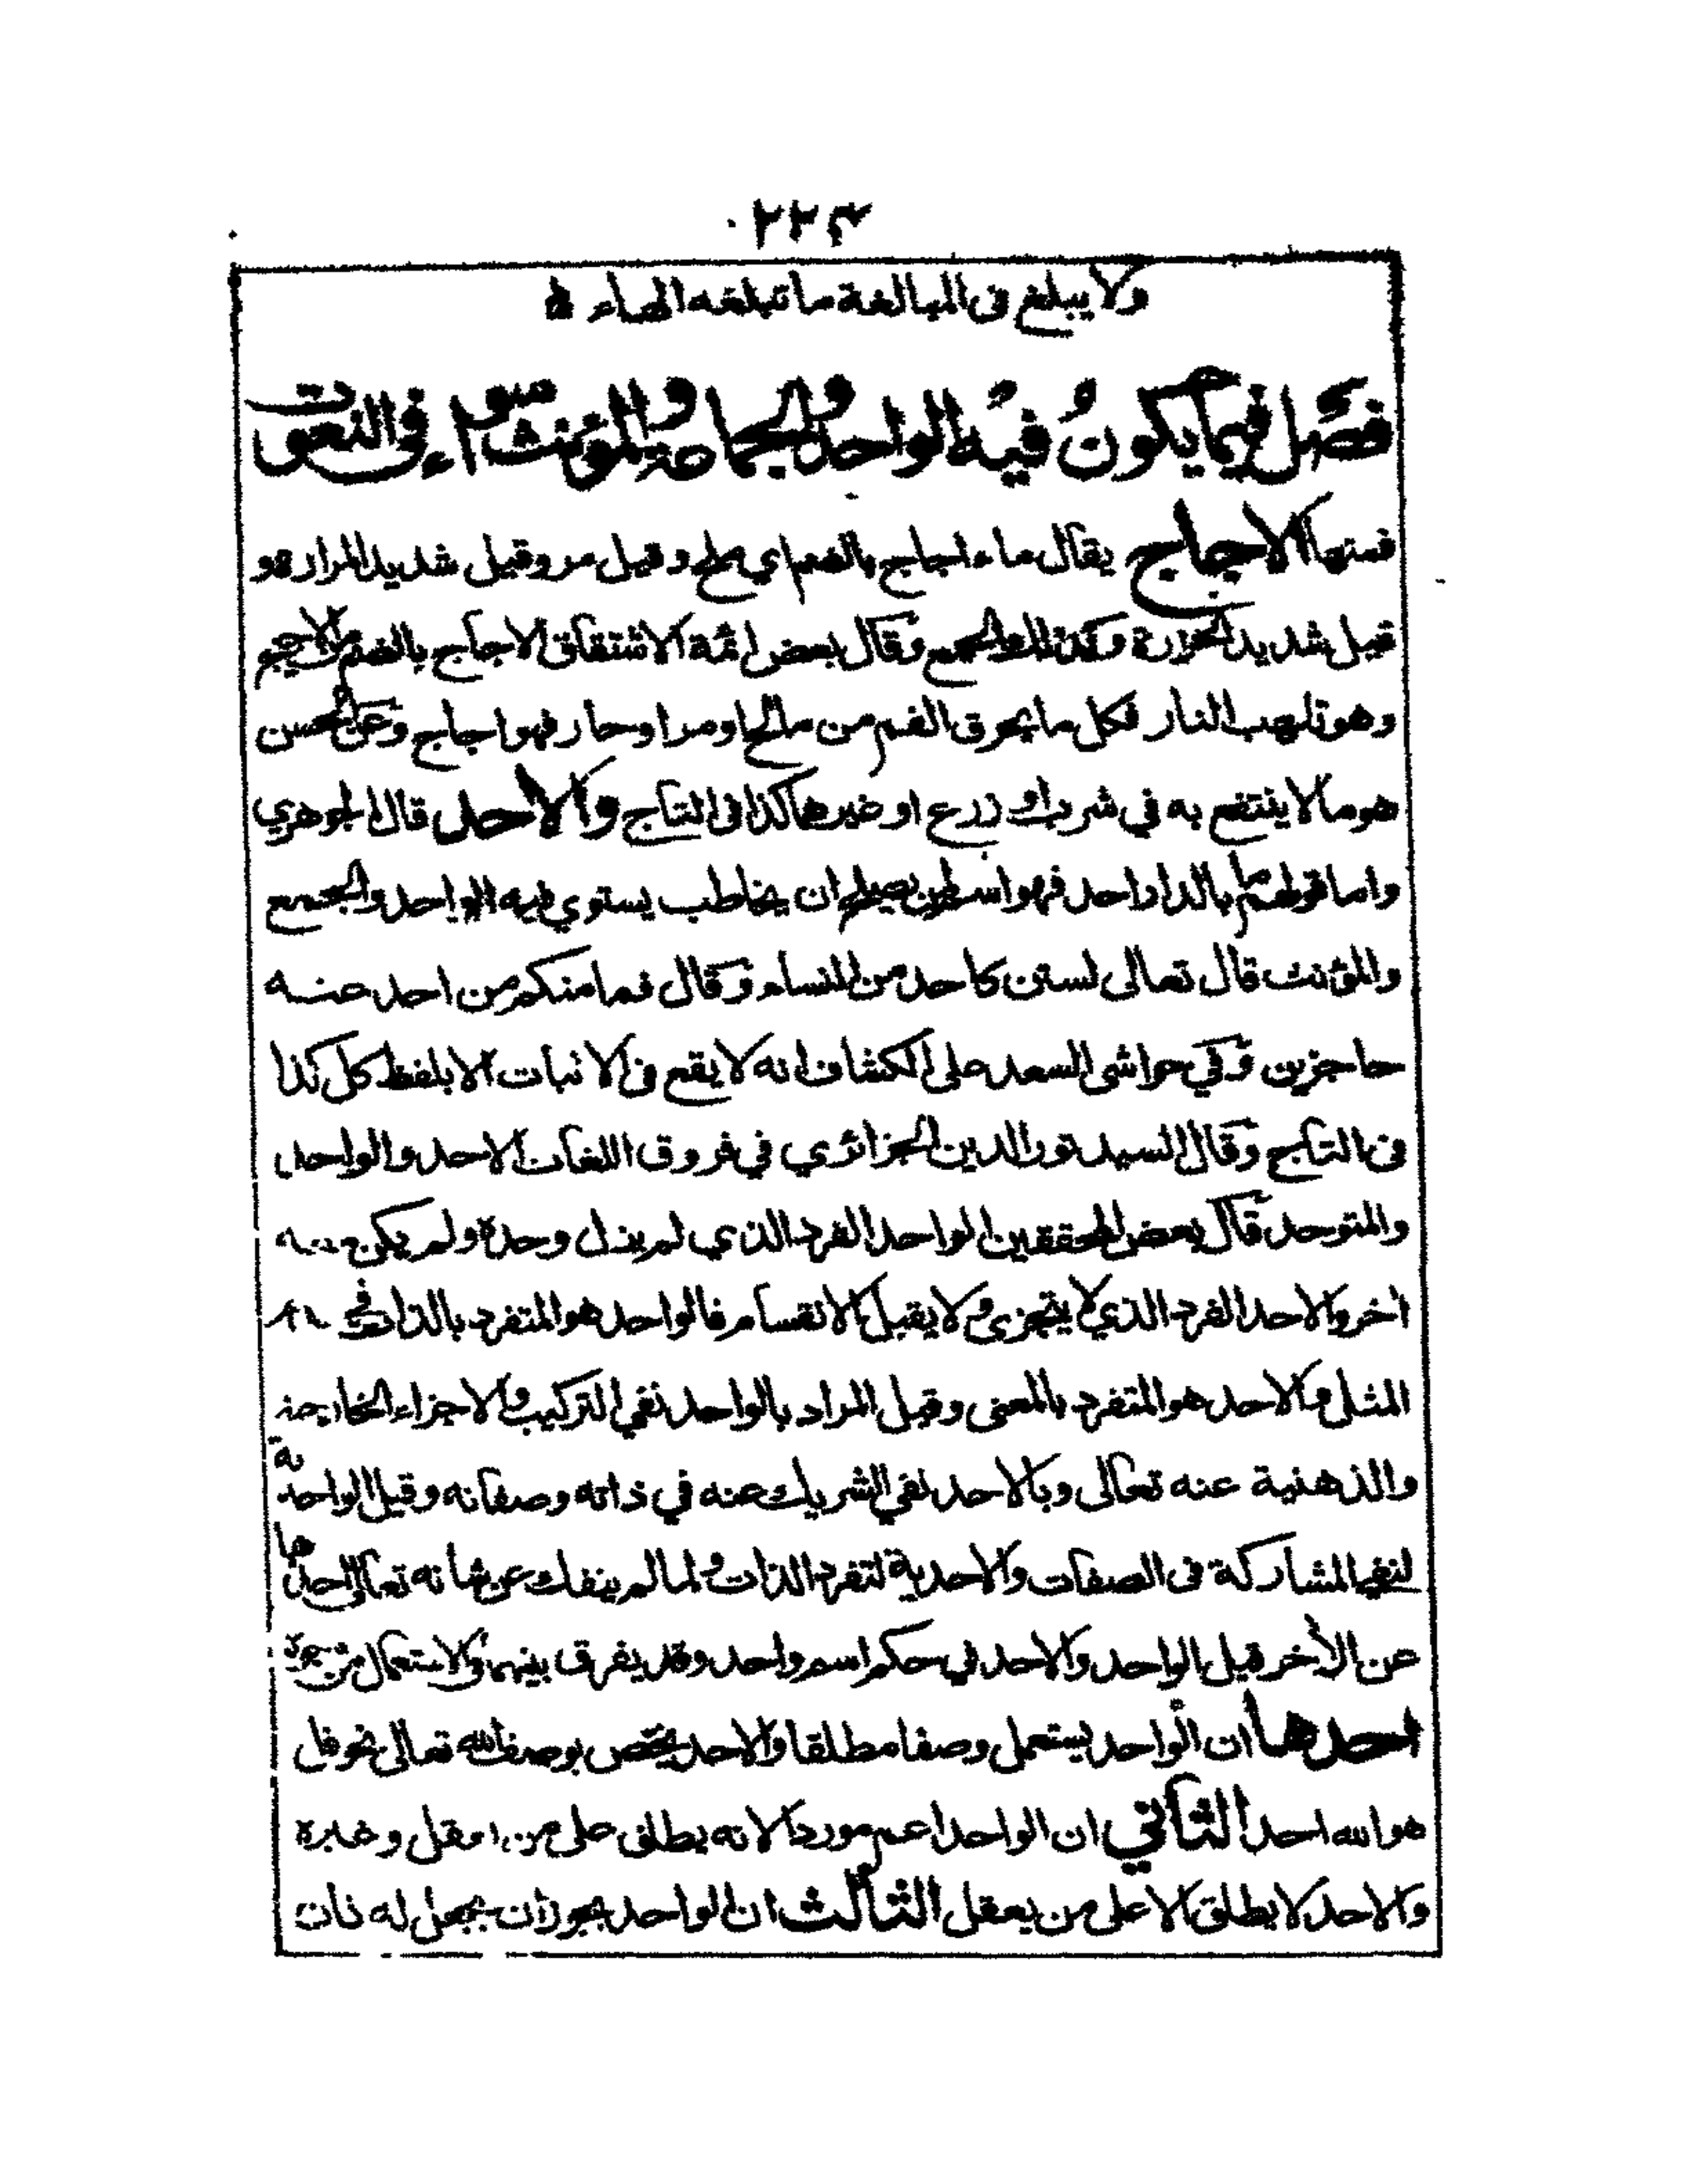 ٢٢٣
ولا يبلغ فى المبالغة ما تبلغه الهاء
فصل فيما يكون فيه الواحد والجماعة والمؤنث سواء فى النعوت
فمنها الاجاج يقال ماء اجاج بالضم اي ملح وقيل مر وقيل شديد المرارة و
قيل شديد الحرارة وكذلك الجمع وقال بعض ائمة الاشتقاق الاجاج بالضم من الاجيج
وهو تلهب النار فكل ما يحرق الفم من مالح او مر او حار فهو اجاج وعن الحسن
هو ما لا ينتفع به في شرب او زرع او غيرهما كذا فى التاج والاحد قال الجوهري
واما قولهم ما بالدار احد فهو اسم لمن يصلح ان يخاطب يستوي فيه الواحد والجمع
والمؤنث قال تعالى لستن كاحد من النساء وقال فما منكم من احد عنه
حاجزين وفي حواشي السعد على الكشاف انه لا يقع فى الاثبات الا بلفظ كل كذا
فى التاج وقال السيد نور الدين الجزائري في فروق اللغات الاحد والواحد
والمتوحد قال بعض المحققين الواحد الفرد الذي لم يزل وحدة ولم يكن معه
اخر والاحد الفرد الذي لا يتجزى ولا يقبل الانقسام فالواحد هو المتفرد بالذات في
المثل والاحد هو المتفرد بالمعنى وقيل المراد بالواحد نفي التركيب والاجزاء الخارجية
والذهنية عنه تعالى وبالاحد نفي الشريك عنه في ذاته وصفاته وقيل الواحدية
لنفي المشاركة فى الصفات والاحدية لتفرد الذات ولما لم ينفك عن شانه تعالى احدهما
عن الأخر قيل الواحد والاحد في حكم اسم واحد وقد يفرق بينهما فى الاستعمال من وجوه
احدهما ان الواحد يستعمل وصفا مطلقا والاحد يختص بوصف الله تعالى نحو قل
هو الله احد الثاني ان الواحد اعم موردا لانه يطلق على من يعقل وغيره
والاحد لا يطلق الا على من يعقل الثالث ان الواحد يجوز ان يجعل له ثان